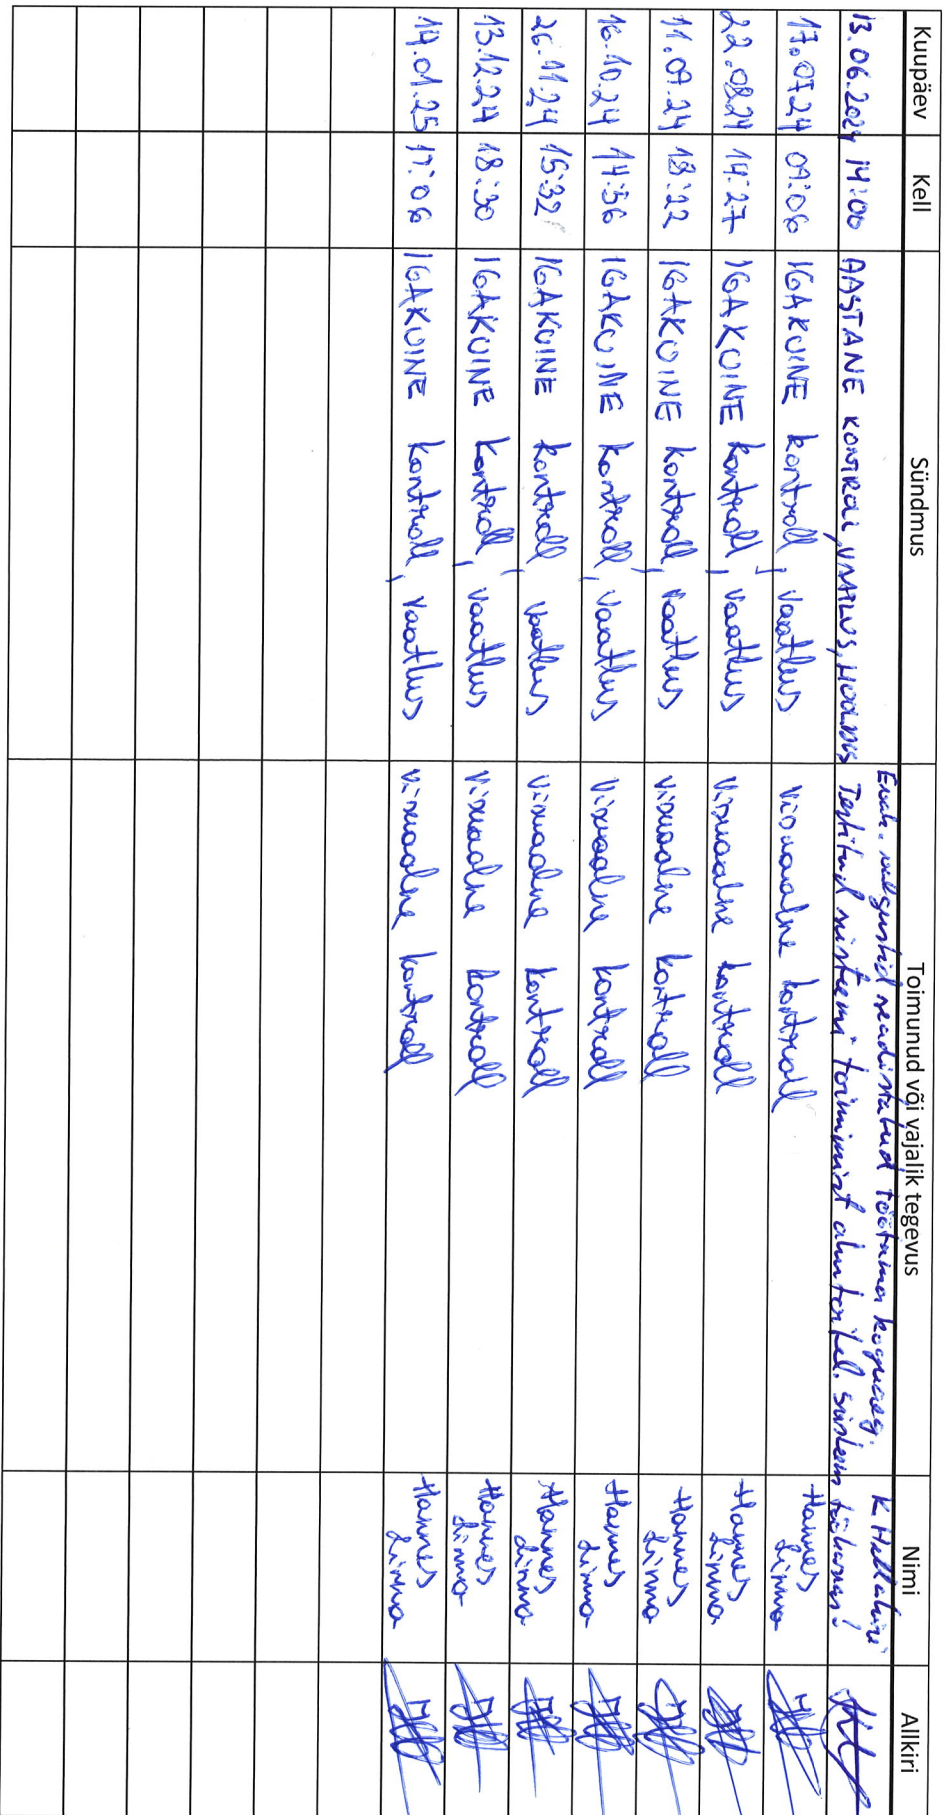 Kuupäev Kell Sündmus Toimunud või vajalik tegevus Nimi Allkiri
töötama koguaeg.
13.06.2024 14:00 AASTANE KONTROLL, VAATLUS, HOOLDUS Testitud süsteemi toimimist süsteem töökorras!
17.07.24 09:06 IGAKUINE kontroll, vaatlus visuaalne kontroll Hannes Linno
22.08.24 14:27 IGAKUINE kontroll, vaatlus visuaalne kontroll Hannes Linno
11.09.24 18:22 IGAKUINE kontroll, vaatlus visuaalne kontroll Hannes Linno
16.10.24 14:56 IGAKUINE kontroll, vaatlus visuaalne kontroll Hannes Linno
26.11.24 15:32 IGAKUINE kontroll, vaatlus visuaalne kontroll Hannes Linno
13.12.24 18:30 IGAKUINE kontroll, vaatlus visuaalne kontroll Hannes Linno
14.01.25 17:06 IGAKUINE kontroll, vaatlus visuaalne kontroll Hannes Linno